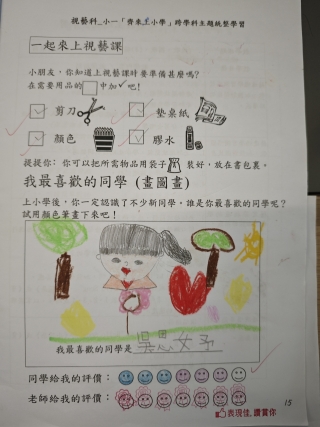 視藝科_小一「齊來上小學」跨學科主題統整學習
一起來上視藝課
小朋友，你知道上視藝課時要準備甚麼嗎？
在需要用品的□中加✓吧！
剪刀
墊桌紙
顏色
膠水
提提你：你可以把所需物品用袋子裝好，放在書包裏。
我最喜歡的同學（畫圖畫）
上小學後，你一定認識了不少新同學。誰是你最喜歡的同學呢？
試用顏色筆畫下來吧！
我最喜歡的同學是 吳思女予
同學給我的評價：
老師給我的評價：
15
我表現佳，讚賞你